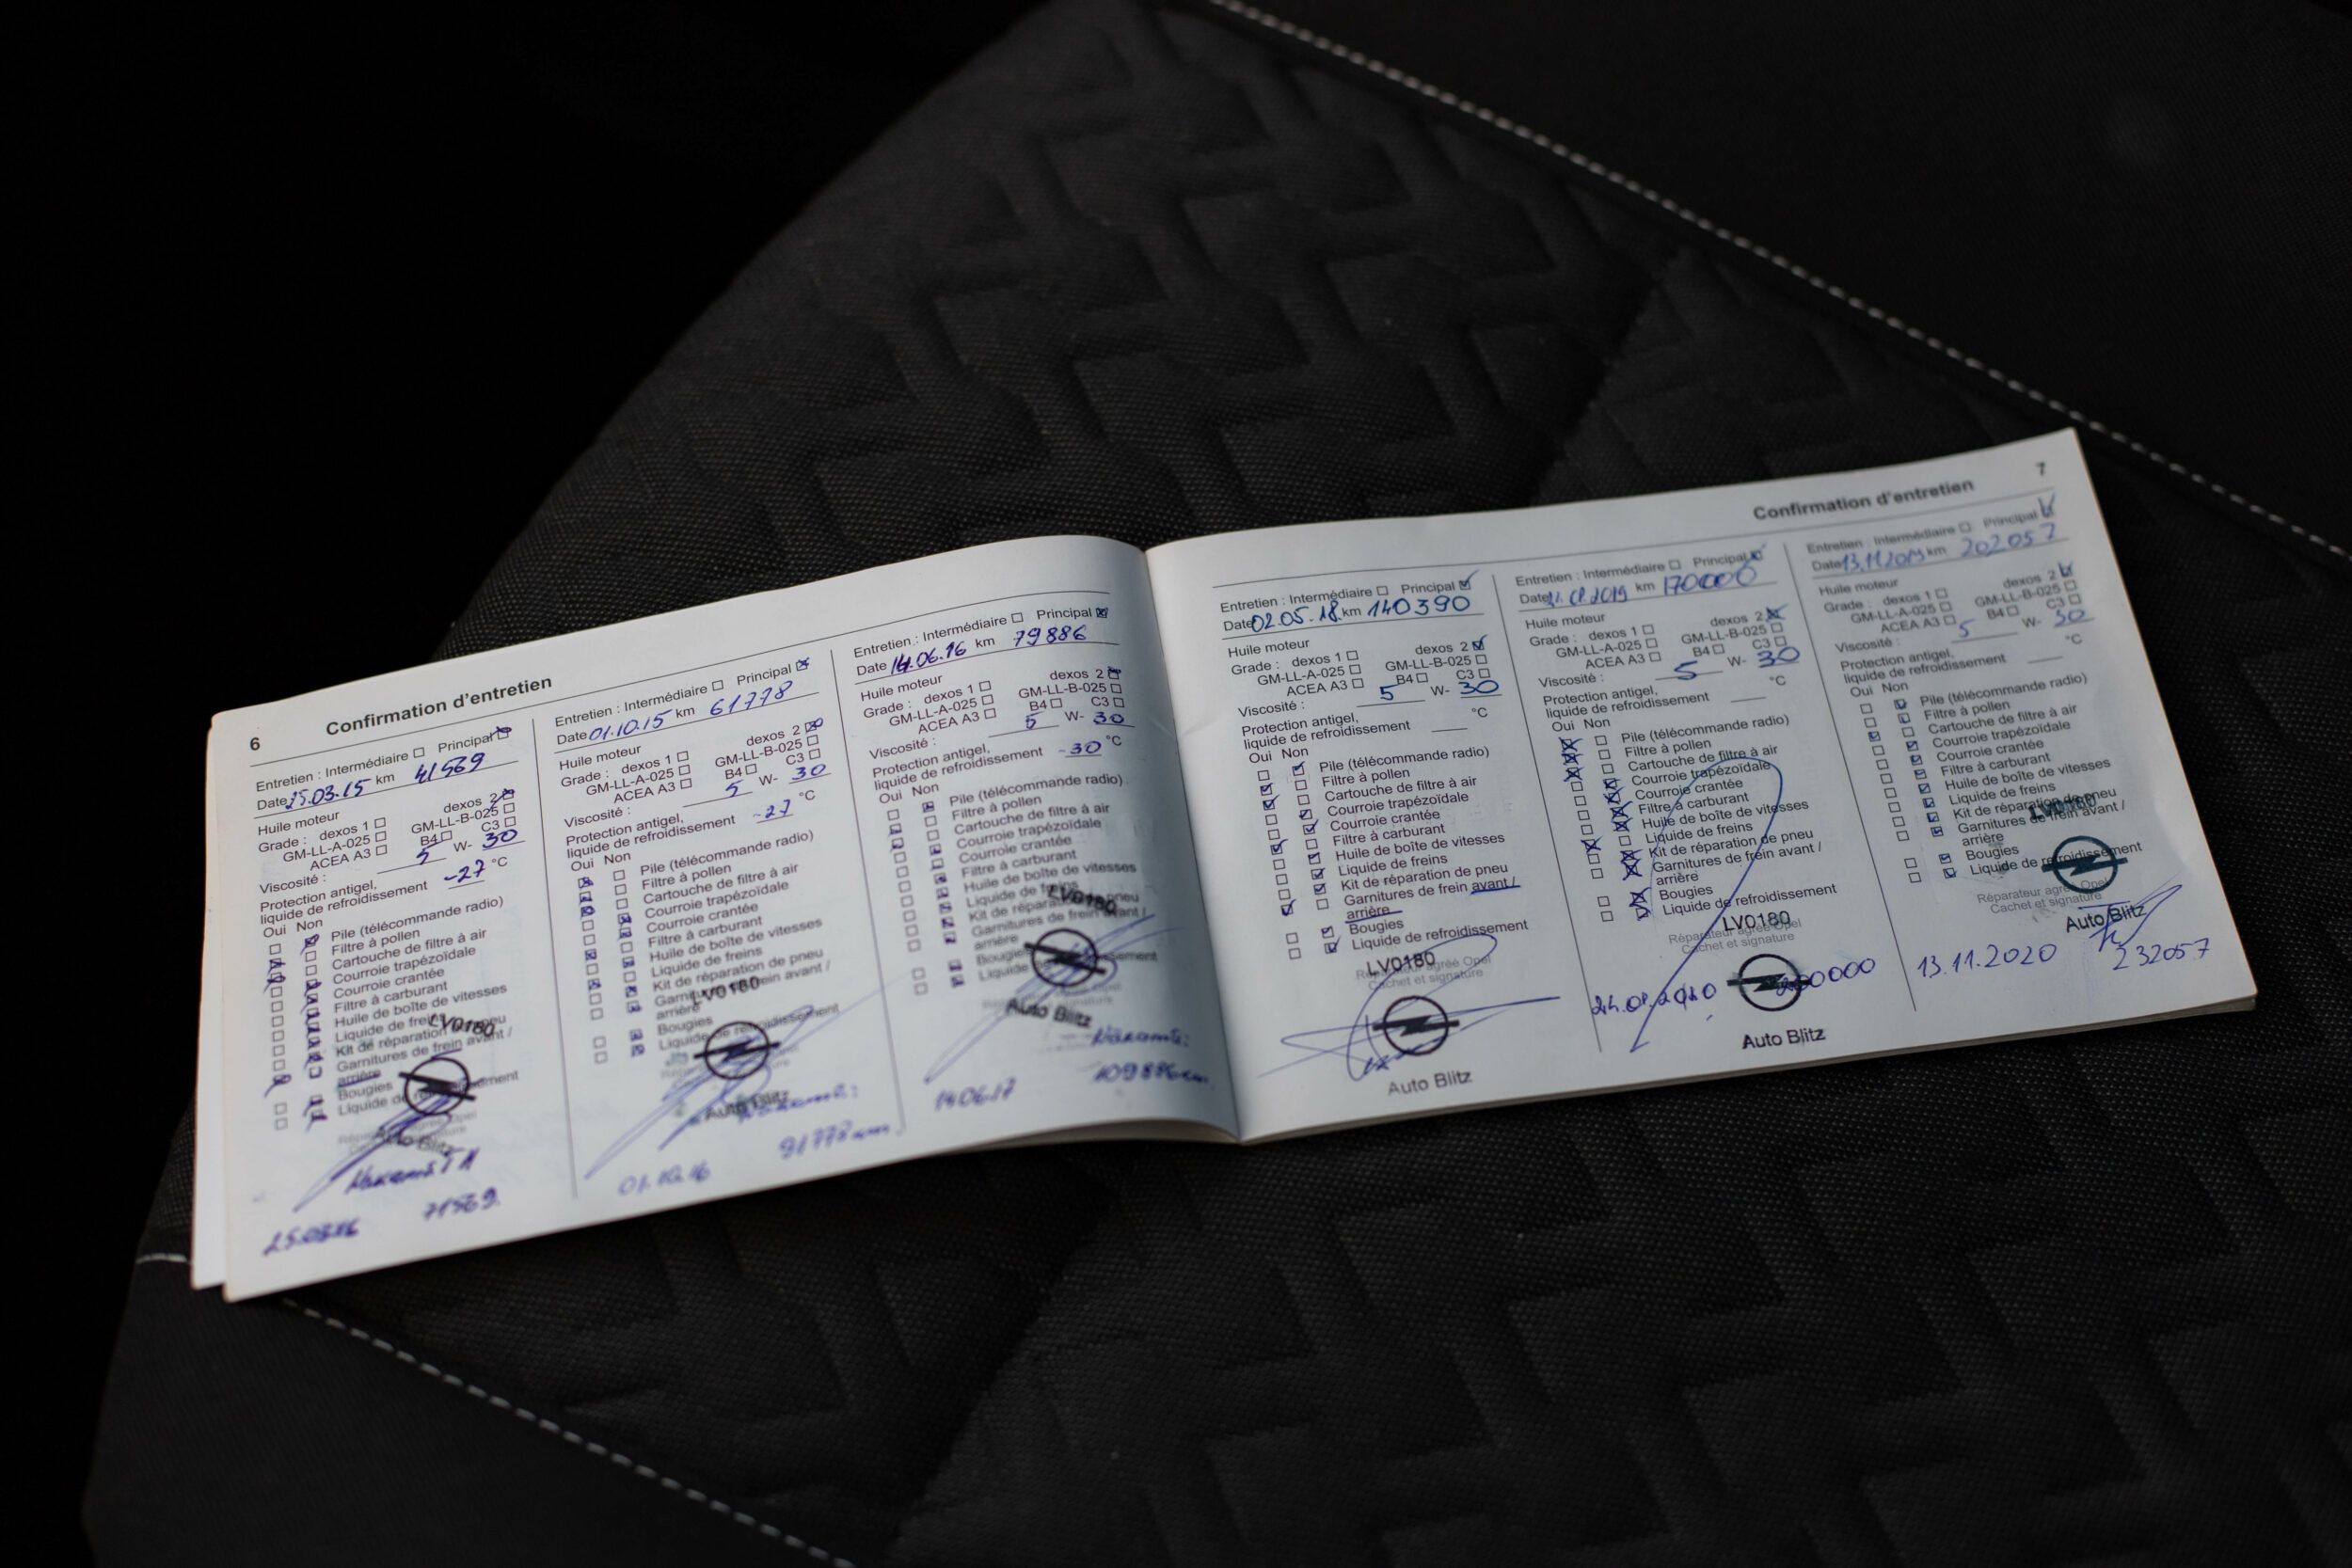 6
Confirmation d'entretien
Entretien : Intermédiaire Principal
Date 25.03.15 km 41569
Huile moteur
Grade : dexos 1 dexos 2
GM-LL-A-025 GM-LL-B-025
ACEA A3 B4 C3
Viscosité : 5 W- 30
Protection antigel,
liquide de refroidissement -27 °C
Oui Non
Pile (télécommande radio)
Filtre à pollen
Cartouche de filtre à air
Courroie trapézoïdale
Courroie crantée
Filtre à carburant
Huile de boîte de vitesses
Liquide de freins
LV0180
Kit de réparation de pneu
Garnitures de frein avant /
arrière
Bougies
Liquide de refroidissement
Auto Blitz
71569
Entretien : Intermédiaire Principal
Date 01.10.15 km 61778
Huile moteur
Grade : dexos 1 dexos 2
GM-LL-A-025 GM-LL-B-025
ACEA A3 B4 C3
Viscosité : 5 W- 30
Protection antigel,
liquide de refroidissement -27 °C
Oui Non
Pile (télécommande radio)
Filtre à pollen
Cartouche de filtre à air
Courroie trapézoïdale
Courroie crantée
Filtre à carburant
Huile de boîte de vitesses
Liquide de freins
Kit de réparation de pneu
Garnitures de frein avant /
LV0180
arrière
Bougies
Liquide de refroidissement
Auto Blitz
01.10.16 91778 km.
Entretien : Intermédiaire Principal
Date 14.06.16 km 79886
Huile moteur
Grade : dexos 1 dexos 2
GM-LL-A-025 GM-LL-B-025
ACEA A3 B4 C3
Viscosité : 5 W- 30
Protection antigel,
liquide de refroidissement -30 °C
Oui Non
Pile (télécommande radio)
Filtre à pollen
Cartouche de filtre à air
Courroie trapézoïdale
Courroie crantée
Filtre à carburant
Huile de boîte de vitesses
Liquide de freins
LV0180
Kit de réparation de pneu
Garnitures de frein avant /
arrière
Bougies
Liquide de refroidissement
Auto Blitz
14.06.17 109886 km.
7
Confirmation d'entretien
Entretien : Intermédiaire Principal
Date 02.05.18. km 140390
Huile moteur
Grade : dexos 1 dexos 2
GM-LL-A-025 GM-LL-B-025
ACEA A3 B4 C3
Viscosité : 5 W- 30
Protection antigel,
liquide de refroidissement °C
Oui Non
Pile (télécommande radio)
Filtre à pollen
Cartouche de filtre à air
Courroie trapézoïdale
Courroie crantée
Filtre à carburant
Huile de boîte de vitesses
Liquide de freins
Kit de réparation de pneu
Garnitures de frein avant /
arrière
Bougies
Liquide de refroidissement
LV0180
Réparateur agréé Opel
Cachet et signature
Auto Blitz
Entretien : Intermédiaire Principal
Date km 170000
Huile moteur
Grade : dexos 1 dexos 2
GM-LL-A-025 GM-LL-B-025
ACEA A3 B4 C3
Viscosité : 5 W- 30
Protection antigel,
liquide de refroidissement °C
Oui Non
Pile (télécommande radio)
Filtre à pollen
Cartouche de filtre à air
Courroie trapézoïdale
Courroie crantée
Filtre à carburant
Huile de boîte de vitesses
Liquide de freins
Kit de réparation de pneu
Garnitures de frein avant /
arrière
Bougies
Liquide de refroidissement
LV0180
Réparateur agréé Opel
Cachet et signature
200000
Auto Blitz
Entretien : Intermédiaire Principal
Date 13.11.2019 km 202057
Huile moteur
Grade : dexos 1 dexos 2
GM-LL-A-025 GM-LL-B-025
ACEA A3 B4 C3
Viscosité : 5 W- 30
Protection antigel,
liquide de refroidissement °C
Oui Non
Pile (télécommande radio)
Filtre à pollen
Cartouche de filtre à air
Courroie trapézoïdale
Courroie crantée
Filtre à carburant
Huile de boîte de vitesses
Liquide de freins
Kit de réparation de pneu
LV0180
Garnitures de frein avant /
arrière
Bougies
Liquide de refroidissement
Réparateur agréé Opel
Cachet et signature
Auto Blitz
13.11.2020 232057